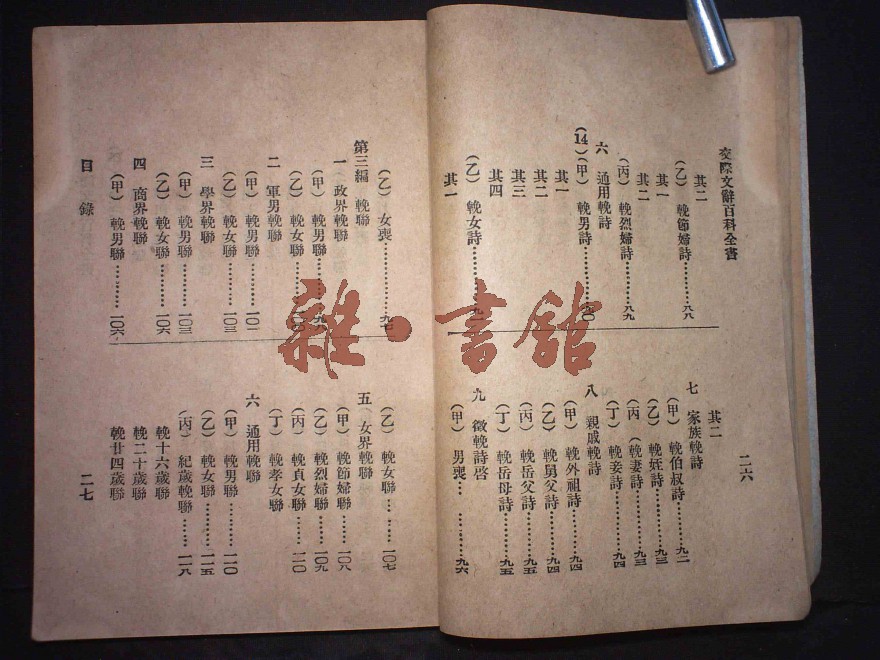 交際文辭百科全書
其二
(乙) 輓節婦詩………八八
其一
其二
(丙) 輓烈婦詩………八九
六 通用輓詩
(14)(甲) 輓男詩………九〇
其一
其二
其三
其四
(乙) 輓女詩………九一
其一
其二
七 家族輓詩
(甲) 輓伯叔詩………九二
(乙) 輓姪詩………九三
(丙) 輓妻詩………九三
(丁) 輓妾詩………九四
八 親戚輓詩
(甲) 輓外祖詩………九四
(乙) 輓舅父詩………九四
(丙) 輓岳父詩………九五
(丁) 輓岳母詩………九五
九 徵輓詩啓
(甲) 男喪………九六
二六
(乙) 女喪………九七
第三編 輓聯
一 政界輓聯
(甲) 輓男聯………九八
(乙) 輓女聯………一〇〇
二 軍男輓聯
(甲) 輓男聯………一〇二
(乙) 輓女聯………一〇三
三 學界輓聯
(甲) 輓男聯………一〇三
(乙) 輓女聯………一〇六
四 商界輓聯
(甲) 輓男聯………一〇六
(乙) 輓女聯………一〇七
五 女界輓聯
(甲) 輓節婦聯………一〇八
(乙) 輓烈婦聯………一〇九
(丙) 輓貞女聯………一一〇
(丁) 輓孝女聯
六 通用輓聯
(甲) 輓男聯………一一〇
(乙) 輓女聯………一一五
(丙) 紀歲輓聯………一一八
輓十六歲聯
輓二十歲聯
輓廿四歲聯
目錄
二七
雜·書館